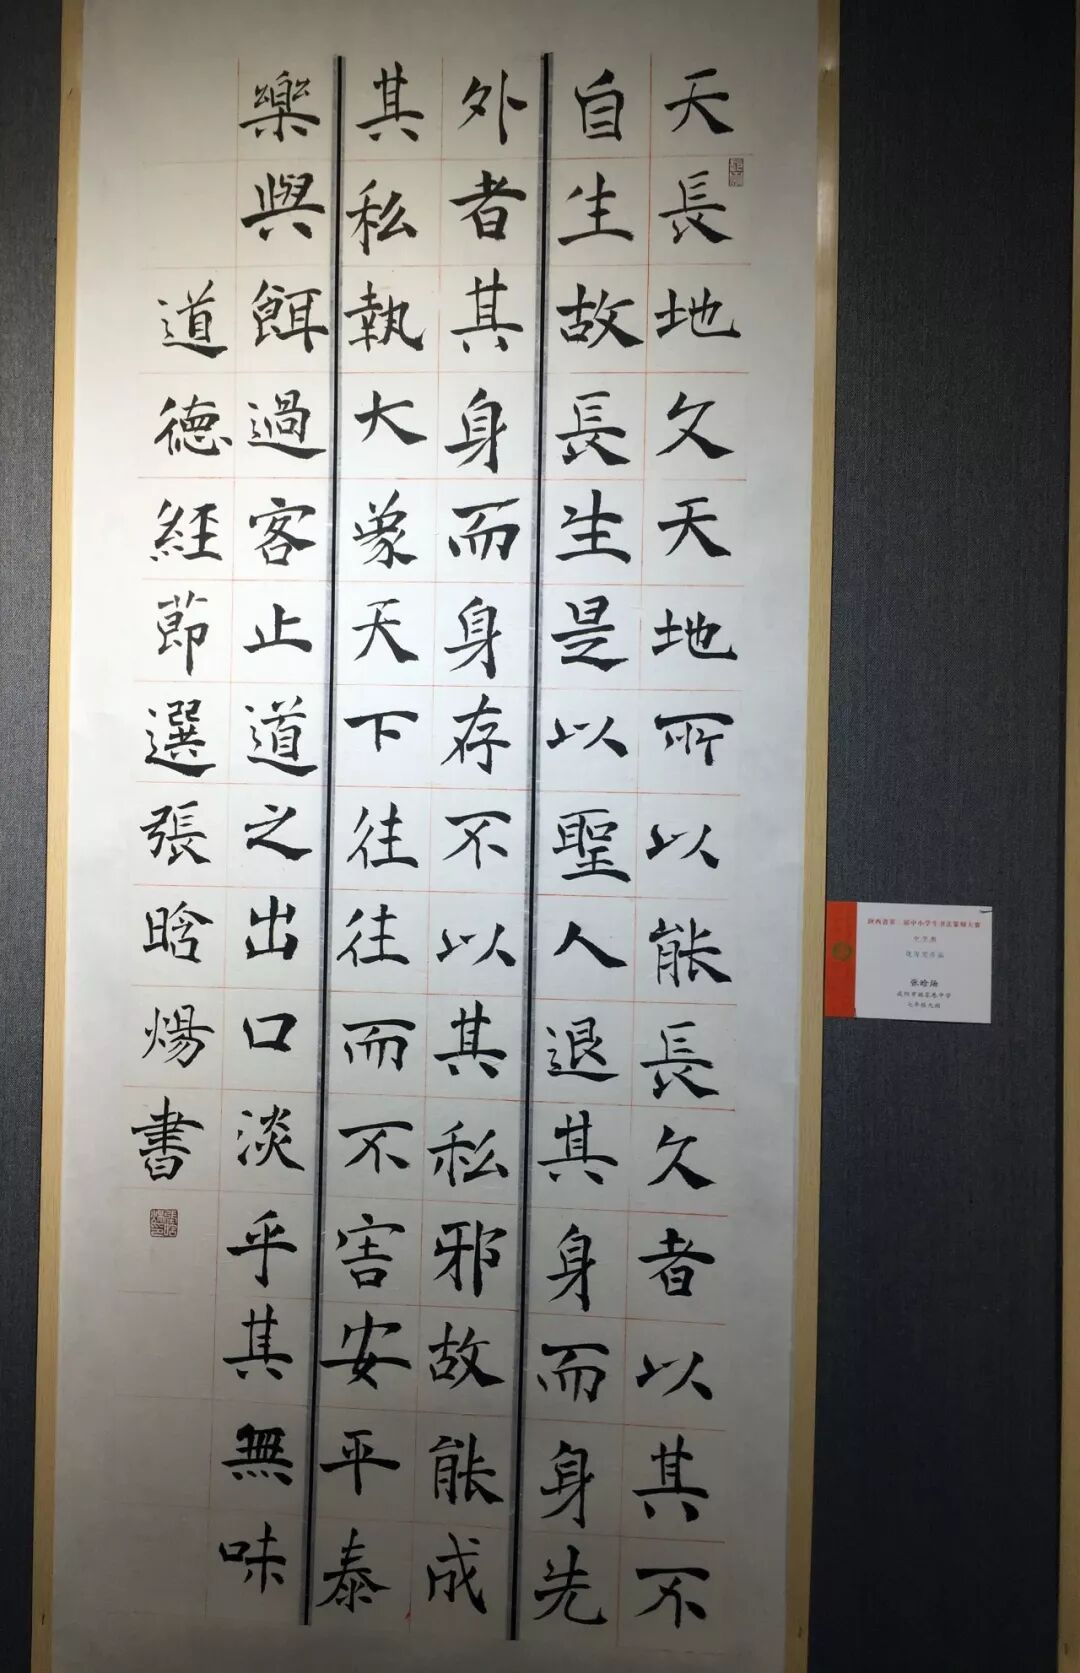 天長地久天地所以能長久者以其不
自生故長生是以聖人退其身而身先
外者其身而身存不以其私邪故能成
其私執大象天下往往而不害安平泰
樂與餌過客止道之出口淡乎其無味
道德經節選張晗煬書
陕西省第二届中小学生书法篆刻大赛
张晗炀